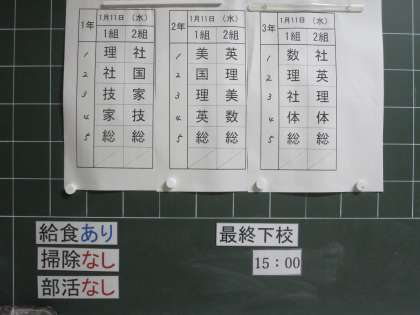 1年 1月11日 (水)
1組 2組
1 理 社
2 社 国
3 技 家
4 家 技
5 総 総
2年 1月11日 (水)
1組 2組
1 美 英
2 国 理
3 理 美
4 英 数
5 総 総
3年 1月11日 (水)
1組 2組
1 数 社
2 理 英
3 社 理
4 体 体
5 総 総
給食あり
掃除なし
部活なし
最終下校
15:00